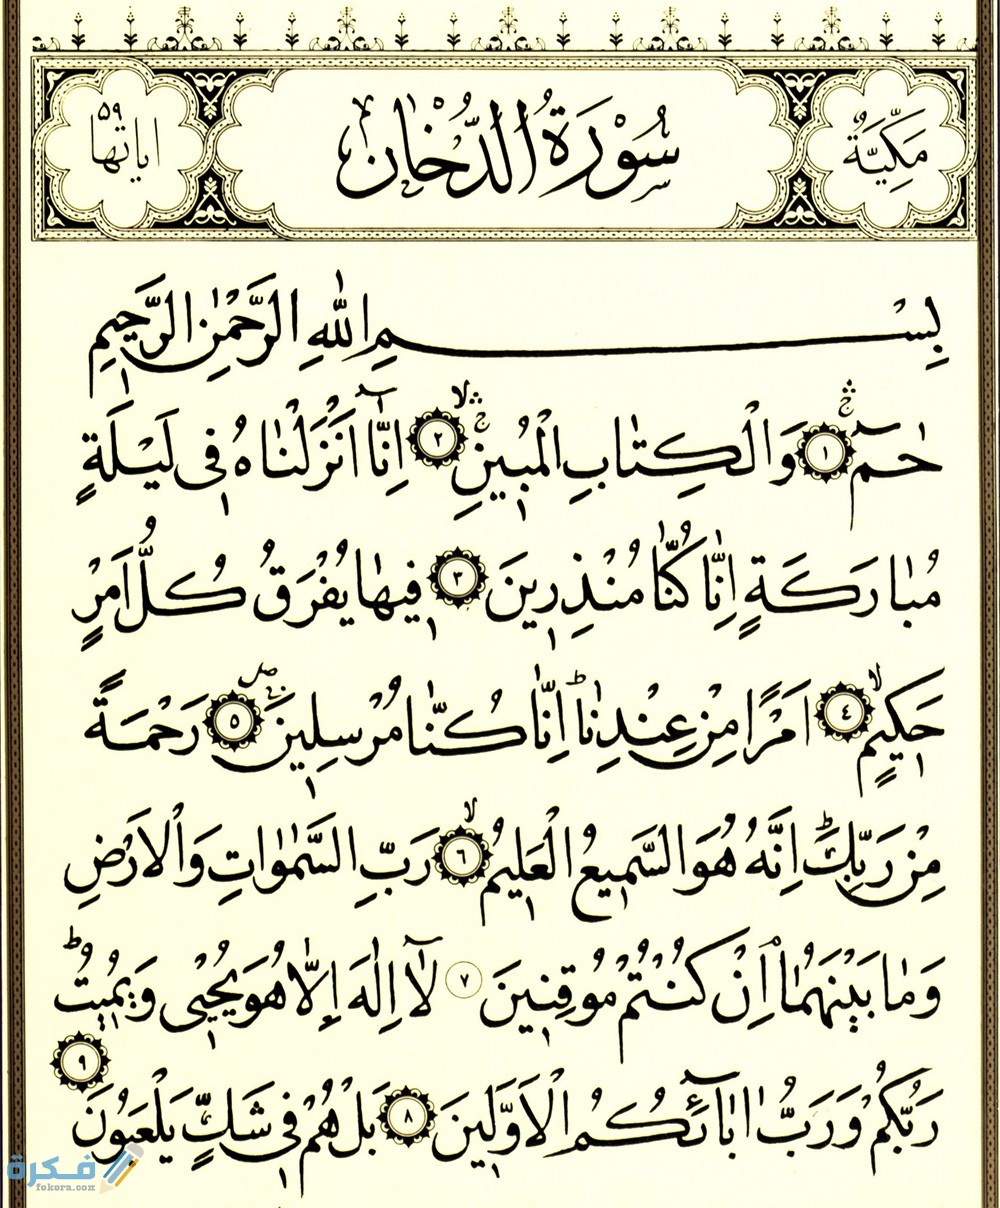 مَكِّيَّةٌ سُوْرَةُ الدُّخَانِ اٰيَاتُهَا ٥٩
بِسْمِ اللّٰهِ الرَّحْمٰنِ الرَّحٖيمِ
حٰمٓ ۚۛ ١ وَالْكِتَابِ الْمُبٖينِ ۙۛ ٢ اِنَّٓا اَنْزَلْنَاهُ فٖى لَيْلَةٍ
مُبَارَكَةٍ اِنَّا كُنَّا مُنْذِرٖينَ ٣ فٖيهَا يُفْرَقُ كُلُّ اَمْرٍ
حَكٖيمٍ ۙ ٤ اَمْرًا مِنْ عِنْدِنَا ؕ اِنَّا كُنَّا مُرْسِلٖينَ ۚ ٥ رَحْمَةً
مِنْ رَبِّكَ ؕ اِنَّهُ هُوَ السَّمٖيعُ الْعَلٖيمُ ۙ ٦ رَبِّ السَّمٰوَاتِ وَالْاَرْضِ
وَمَا بَيْنَهُمَا اِنْ كُنْتُمْ مُوقِنٖينَ ٧ لَٓا اِلٰهَ اِلَّا هُوَ يُحْيٖى وَيُمٖيتُ ؕ
رَبُّكُمْ وَرَبُّ اٰبَٓائِكُمُ الْاَوَّلٖينَ ٨ بَلْ هُمْ فٖى شَكٍّ يَلْعَبُونَ ٩
فكرة
fokora.com